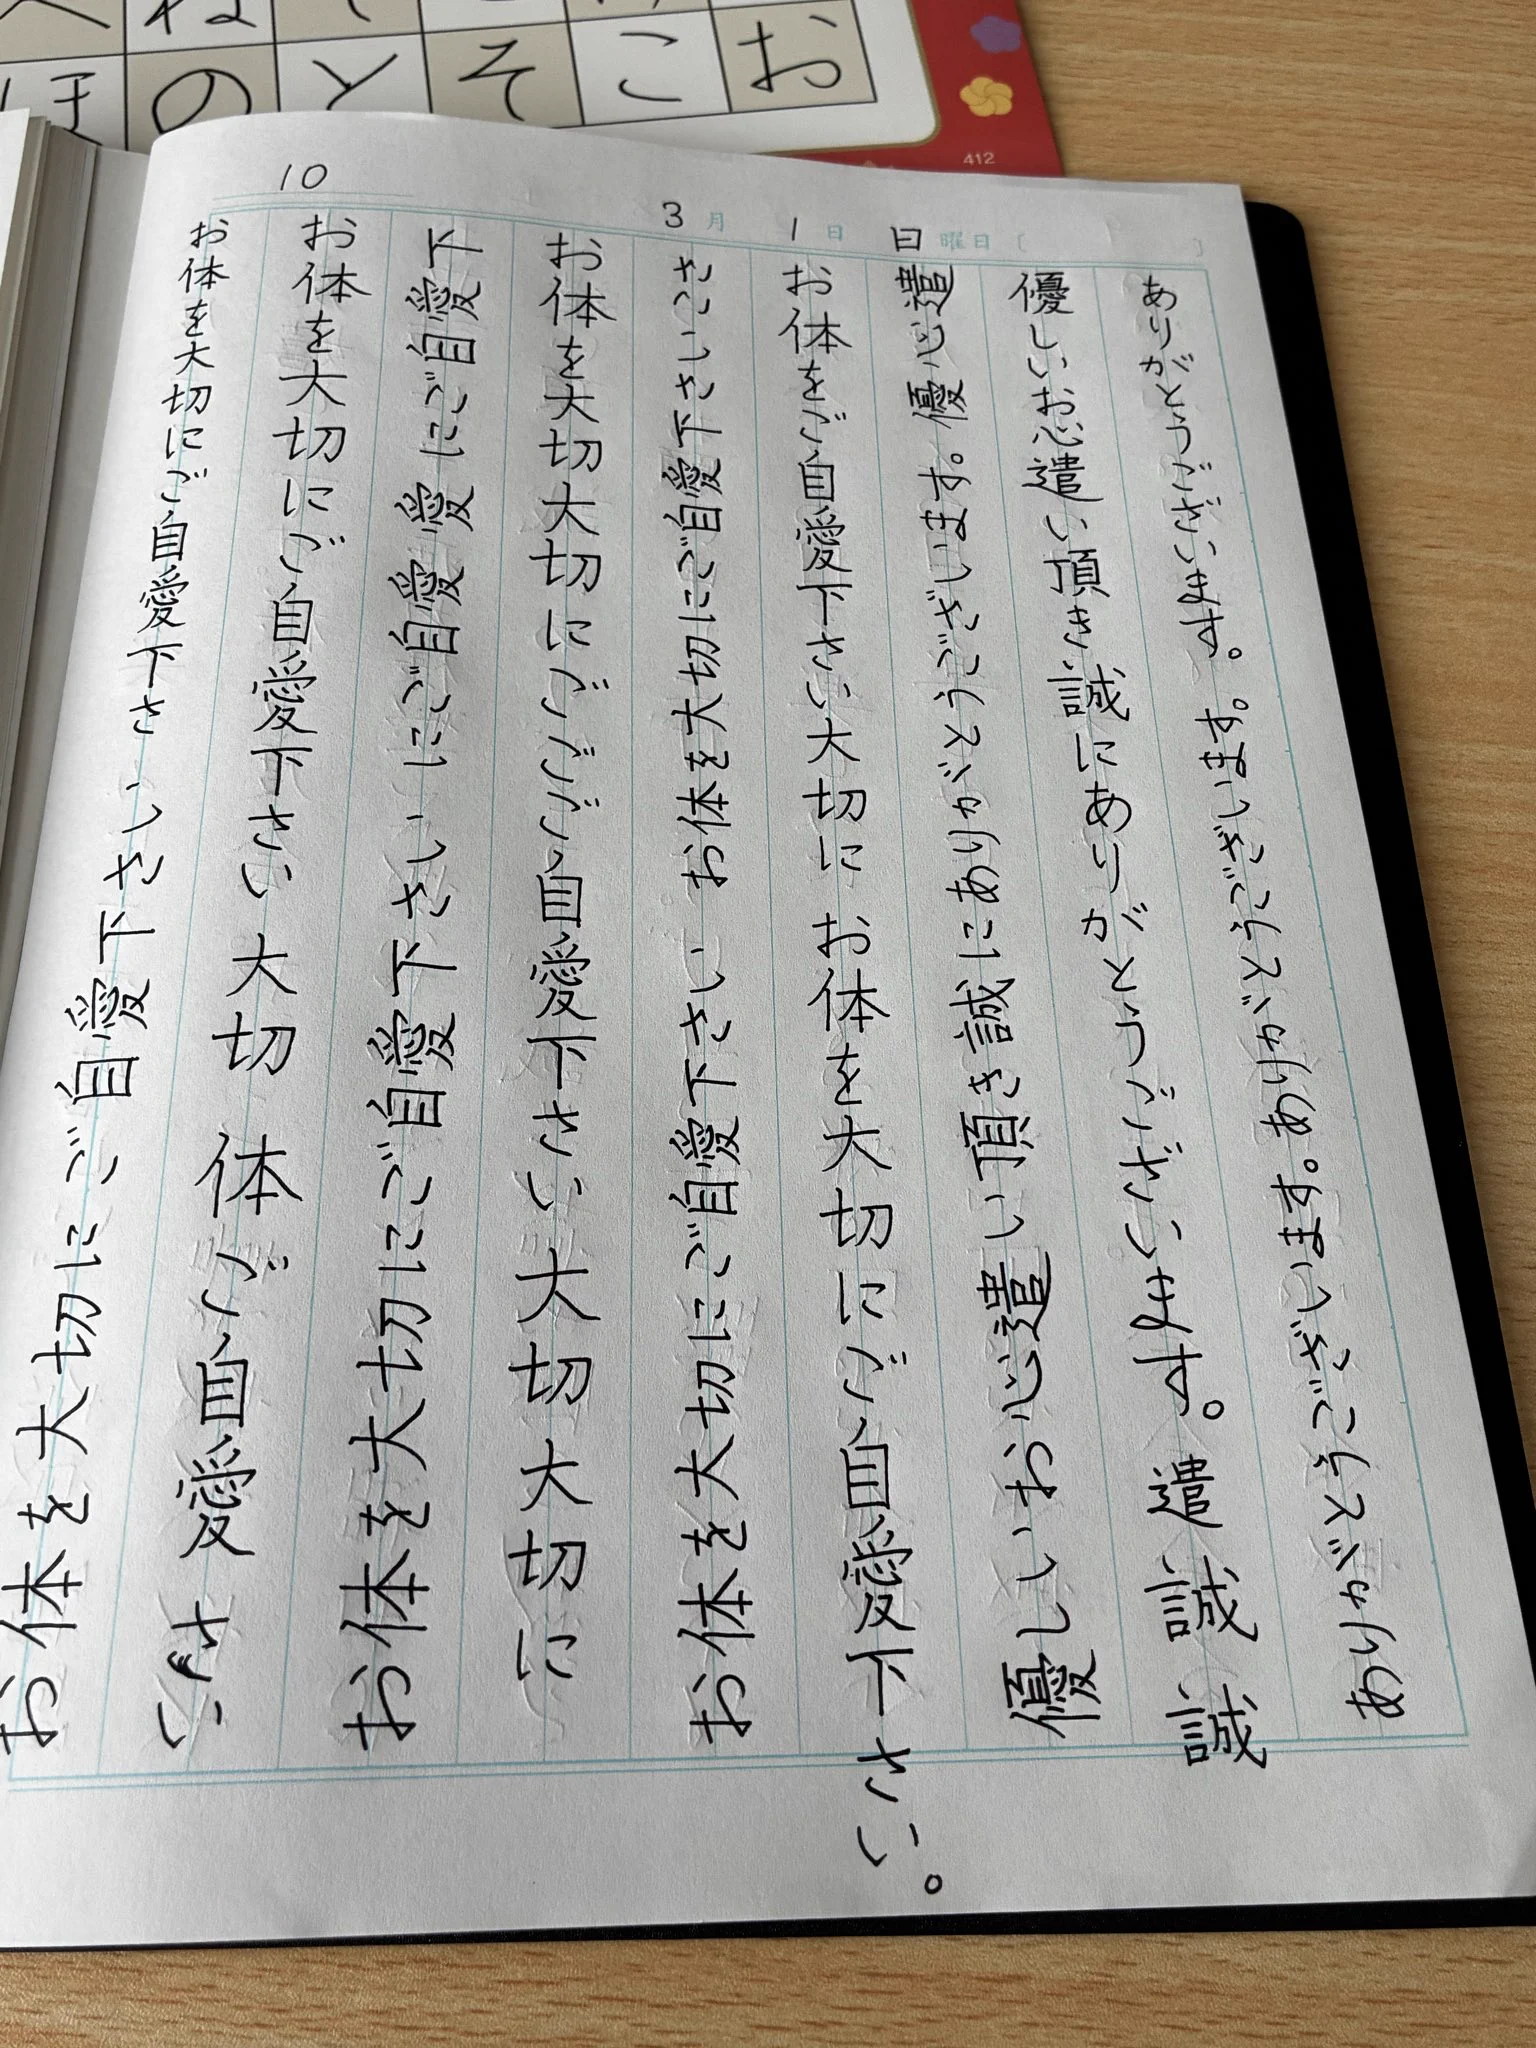 おこそとのほ
ねへ
412
10
3月1日日曜日
ありがとうございます。
ありがとうございます。ありがとうございます。
優しいお心遣い頂き誠にありがとうございます。遣誠誠
優しいお心遣い頂き誠にありがとうございます。優心遣
お体をご自愛下さい大切にお体を大切にご自愛下さい。
お体を大切にご自愛下さい お体を大切にご自愛下さい
お体を大切大切にごごご自愛下さい大切大切に
お体を大切にご自愛下さいにご自愛愛にご自愛下
お体を大切にご自愛下さい大切体ご自愛さい
お体を大切にご自愛下さ
お体を大切にご自愛下さい